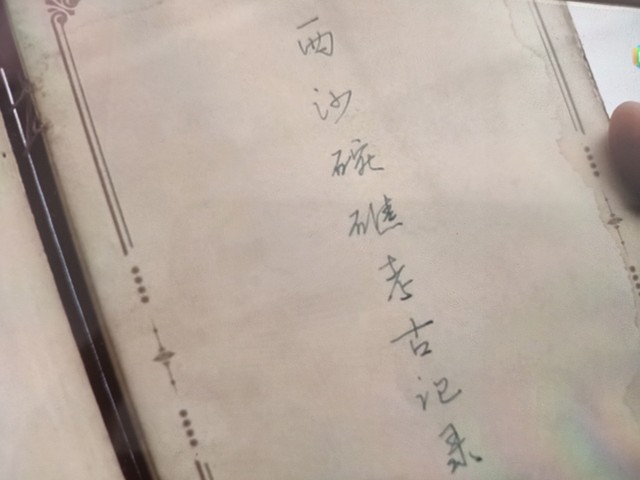 西沙碗礁考古记录